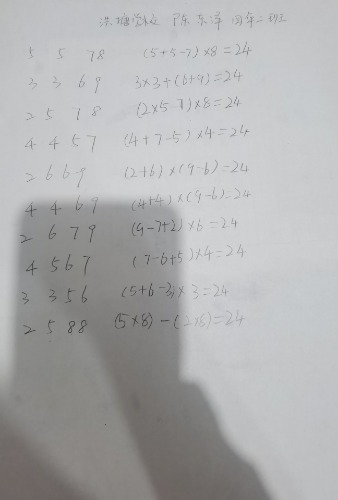 洪塘学校 陈东泽 四年二班
5 5 7 8 (5+5-7)×8=24
3 3 6 9 3×3+(6+9)=24
2 5 7 8 (2×5-7)×8=24
4 4 5 7 (4+7-5)×4=24
2 6 6 9 (2+6)×(9-6)=24
4 4 6 9 (4+4)×(9-6)=24
2 6 7 9 (9-7+2)×6=24
4 5 6 7 (7-6+5)×4=24
3 3 5 6 (5+6-3)×3=24
2 5 8 8 (5×8)-(2×8)=24